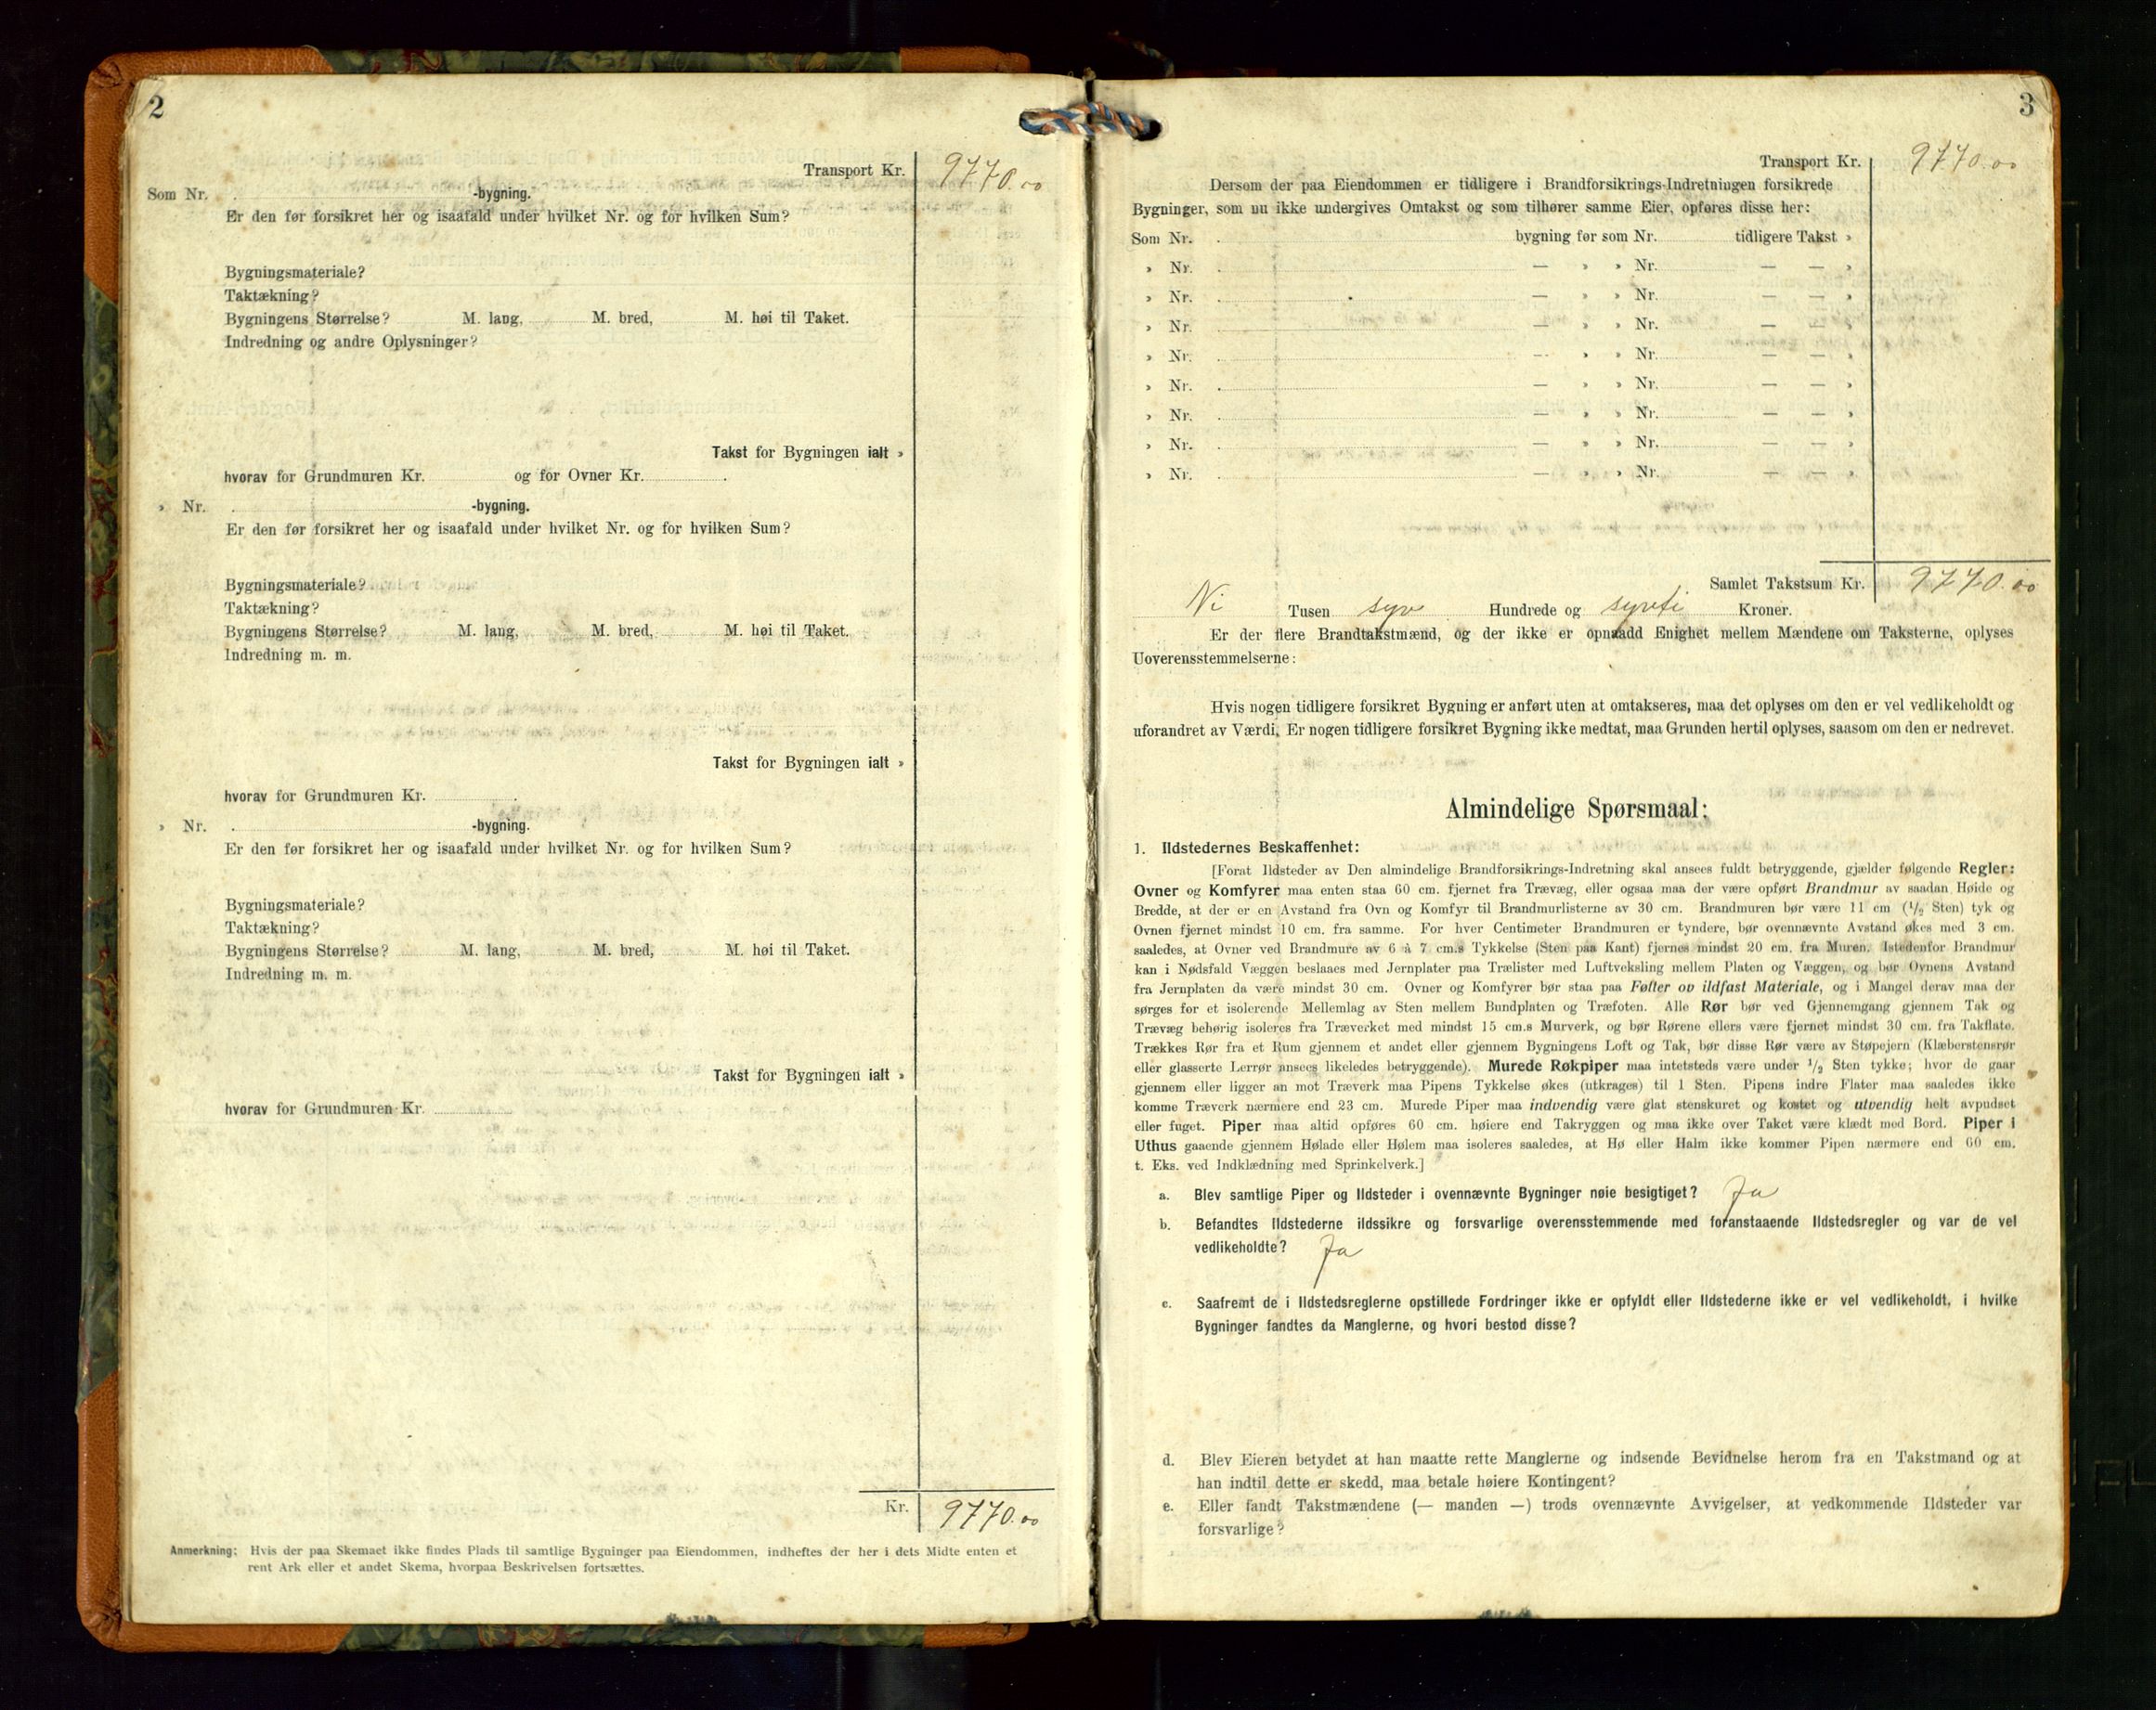 2
Transport Kr. 9770.00
Som Nr. -bygning.
Er den før forsikret her og isaafald under hvilket Nr. og for hvilken Sum?
Bygningsmateriale?
Taktækning?
Bygningens Størrelse? M. lang, M. bred, M. høi til Taket.
Indredning og andre Oplysninger?
Takst for Bygningen ialt »
hvorav for Grundmuren Kr. og for Ovner Kr.
» Nr. -bygning.
Er den før forsikret her og isaafald under hvilket Nr. og for hvilken Sum?
Bygningsmateriale?
Taktækning?
Bygningens Størrelse? M. lang, M. bred, M. høi til Taket.
Indredning m. m.
Takst for Bygningen ialt »
hvorav for Grundmuren Kr.
» Nr. -bygning.
Er den før forsikret her og isaafald under hvilket Nr. og for hvilken Sum?
Bygningsmateriale?
Taktækning?
Bygningens Størrelse? M. lang, M. bred, M. høi til Taket.
Indredning m. m.
Takst for Bygningen ialt »
hvorav for Grundmuren Kr.
Kr. 9770.00
Anmerkning: Hvis der paa Skemaet ikke findes Plads til samtlige Bygninger paa Eiendommen, indheftes der her i dets Midte enten et
rent Ark eller et andet Skema, hvorpaa Beskrivelsen fortsættes.
3
Transport Kr. 9770.00
Dersom der paa Eiendommen er tidligere i Brandforsikrings-Indretningen forsikrede
Bygninger, som nu ikke undergives Omtakst og som tilhører samme Eier, opføres disse her:
Som Nr. bygning før som Nr. tidligere Takst »
» Nr. — » » Nr. — — »
» Nr. — » » Nr. — — »
» Nr. — » » Nr. — — »
» Nr. — » » Nr. — — »
» Nr. — » » Nr. — — »
» Nr. — » » Nr. — — »
» Nr. — » » Nr. — — »
» Nr. — » » Nr. — — »
Samlet Takstsum Kr. 9770.00
Ni Tusen syv Hundrede og syvti Kroner.
Er der flere Brandtakstmænd, og der ikke er opnaadd Enighet mellem Mændene om Taksterne, oplyses
Uoverensstemmelserne:
Hvis nogen tidligere forsikret Bygning er anført uten at omtakseres, maa det oplyses om den er vel vedlikeholdt og
uforandret av Værdi. Er nogen tidligere forsikret Bygning ikke medtat, maa Grunden hertil oplyses, saasom om den er nedrevet.
Almindelige Spørsmaal:
1. Ildstedernes Beskaffenhet:
[Forat Ildsteder av Den almindelige Brandforsikrings-Indretning skal ansees fuldt betryggende, gjælder følgende Regler:
Ovner og Komfyrer maa enten staa 60 cm. fjernet fra Trævæg, eller ogsaa maa der være opført Brandmur av saadan Høide og
Bredde, at der er en Avstand fra Ovn og Komfyr til Brandmurlisterne av 30 cm. Brandmuren bør være 11 cm (1/2 Sten) tyk og
Ovnen fjernet mindst 10 cm. fra samme. For hver Centimeter Brandmuren er tyndere, bør ovennævnte Avstand økes med 3 cm.
saaledes, at Ovner ved Brandmure av 6 à 7 cm.s Tykkelse (Sten paa Kant) fjernes mindst 20 cm. fra Muren. Istedenfor Brandmur
kan i Nødsfald Væggen beslaaes med Jernplater paa Trælister med Luftveksling mellem Platen og Væggen, og bør Ovnens Avstand
fra Jernplaten da være mindst 30 cm. Ovner og Komfyrer bør staa paa Føtter ov ildfast Materiale, og i Mangel derav maa der
sørges for et isolerende Mellemlag av Sten mellem Bundplaten og Træfoten. Alle Rør bør ved Gjennemgang gjennem Tak og
Trævæg behørig isoleres fra Træverket med mindst 15 cm.s Murverk, og bør Rørene ellers være fjernet mindst 30 cm. fra Takflate.
Trækkes Rør fra et Rum gjennem et andet eller gjennem Bygningens Loft og Tak, bør disse Rør være av Støpejern (Klæberstensrør
eller glasserte Lerrør ansees likeledes betryggende). Murede Røkpiper maa intetsteds være under 1/2 Sten tykke; hvor de gaar
gjennem eller ligger an mot Træverk maa Pipens Tykkelse økes (utkrages) til 1 Sten. Pipens indre Flater maa saaledes ikke
komme Træverk nærmere end 23 cm. Murede Piper maa indvendig være glat stenskuret og kostet og utvendig helt avpudset
eller fuget. Piper maa altid opføres 60 cm. høiere end Takryggen og maa ikke over Taket være klædt med Bord. Piper i
Uthus gaaende gjennem Hølade eller Hølem maa isoleres saaledes, at Hø eller Halm ikke kommer Pipen nærmere end 60 cm.
t. Eks. ved Indklædning med Sprinkelverk.]
a. Blev samtlige Piper og Ildsteder i ovennævnte Bygninger nøie besigtiget? Ja
b. Befandtes Ildstederne ildssikre og forsvarlige overensstemmende med foranstaaende Ildstedsregler og var de vel
vedlikeholdte? Ja
c. Saafremt de i Ildstedsreglerne opstillede Fordringer ikke er opfyldt eller Ildstederne ikke er vel vedlikeholdt, i hvilke
Bygninger fandtes da Manglerne, og hvori bestod disse?
d. Blev Eieren betydet at han maatte rette Manglerne og indsende Bevidnelse herom fra en Takstmand og at
han indtil dette er skedd, maa betale høiere Kontingent?
e. Eller fandt Takstmændene (— manden —) trods ovennævnte Avvigelser, at vedkommende Ildsteder var
forsvarlige?